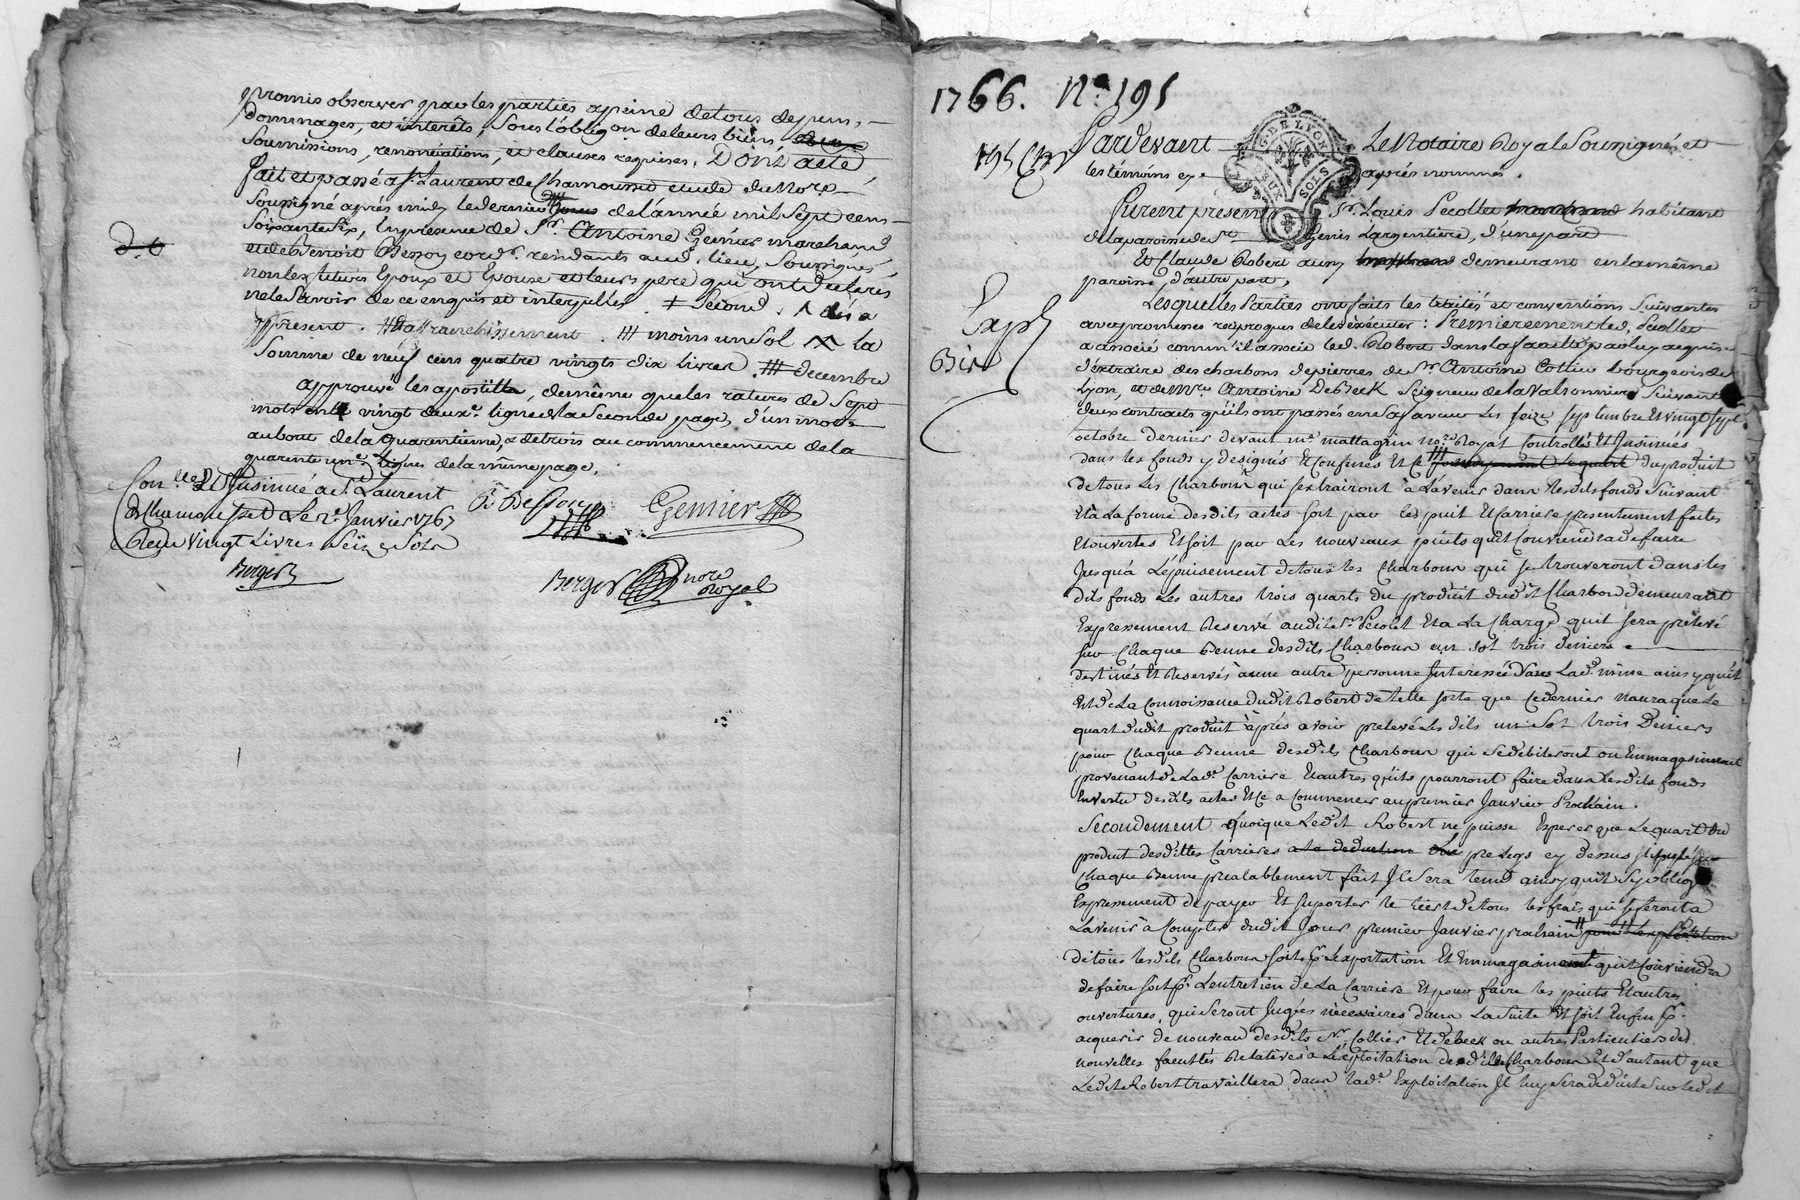 promis observer par les parties a peine de tous depens,
dommages, et interêts, sous l'oblig.on de leurs biens,
soumissions, renonciations, et clauses requises. Dont acte
fait et passé a S.t Laurent de Chamousset etude du no.re
soussigné après midy le dernier de l'année mil sept cens
soixante six, en presence de S.r Antoine Genier marchand
et de Benoit Bessoy cord.r residants aud. lieu, soussignés,
non les futurs Epoux et Epouse et leurs pere qui ont declarés
ne le savoir de ce enquis et interpellés. # Second.
present. affranchissement. # moins un sol la
somme de neuf cens quatre vingts dix livres. # decembre
approuvé les apostilles, de même que les ratures de sept
mots en la vingt deux.e ligne de la seconde page, d'un mot
au bout de la quarentieme, & de trois au commencement de la
quarente un.e lignes de la même page.
Con.llé & Insinué a S.t Laurent
de Chamousset Le 2.e Janvier 1767
Reçu vingt Livres seize sols
Berger
B Bessoy
Genier
Berger no.re royal
1766. N.o 195
Pardevant Le Notaire Royal Soussigné, et
les témoins cy après nommés.
Furent presents S.r Louis Pecollet marchand habitant
de la paroisse de S.t Genis Largentière, d'une part
Et Claude Robert aussy demeurant en la même
paroisse, d'autre part,
Exp.é
Lesquelles Parties ont faits les traités et conventions suivantes
avec promesses reciproques de les exécuter : Premierement led. Pecollet
a associé comm'il associe led. Robert dans la faculté par luy acquise
d'extraire des charbons de pierres de S.r Antoine Collier bourgeois de
Lyon, et de M.re Antoine DeBeck Seigneur de la Valsonniere suivant
deux contracts qu'ils ont passés en sa faveur Les seize septembre Et vingt sept
octobre dernier devant m.e mattagrin no.re Royal Controllés Et Insinués
dans les fonds y designés Et Confinés Et Ce # pour le quart du produit
de tous Les Charbons qui s'extrairont à L'avenir dans Lesdits fonds suivant
Et à La forme desdits actes soit par Les puit Et Carriere presentement faites
Et ouvertes Et soit par Les nouveaux puits qu'il Conviendra de faire
Jusqu'a L'épuisement de tous les Charbons qui se trouveront dans les
dits fonds Les autres trois quarts du produit dudit Charbon demeurant
Expressement Reservé audit S.r Pecolet Et à La Charge qu'il sera prelevé
sur Chaque Benne desdits Charbons un sol trois deniers
destinés Et Reservés à une autre personne Interessée dans Lad.e mine ainsy qu'il
Est de La Connoissance dudit Robert de telle sorte que Ce dernier n'aura que Le
quart dudit produit àprés avoir prelevé Lesdits un sol trois Deniers
pour Chaque Benne desdits Charbons qui se debiteront ou Emmagasineront
provenant de Lad.e Carriere Et autres qu'ils pourront faire dans Lesdits fonds
En vertu desdits actes Et Ce a Commencer au premier Janvier Prochain.
Secondement Quoique Ledit Robert ne puisse Esperer que Le quart du
produit desdittes Carrieres a la deduction prelegs cy dessus
Chaque Benne prealablement fait Il sera tenu ainsy qu'il s'y oblige
Expressement de payer Et suporter le tiers de tous les frais qui se feront a
L'avenir à Compter dudit Jour premier Janvier prochain # pour L'exploitation
de tous lesdits Charbons soit p.r L'exportation Et Emmagasinement qu'il Conviendra
de faire soit p.r L'entretien de La Carriere Et pour faire les puits Et autres
ouvertures, qui seront Jugées nècessaires dans La suite Et soit Enfin p.r
acquerir de nouveau desdits S.rs Collier Et deBeck ou autres Particuliers des
nouvelles facultés Relatives à L'exploitation desdits Charbons Et d'autant que
Ledit Robert travaillera dans lad.e Exploitation Il luy sera deduit sur ledit
G. DE LYON
DEUX SOLS